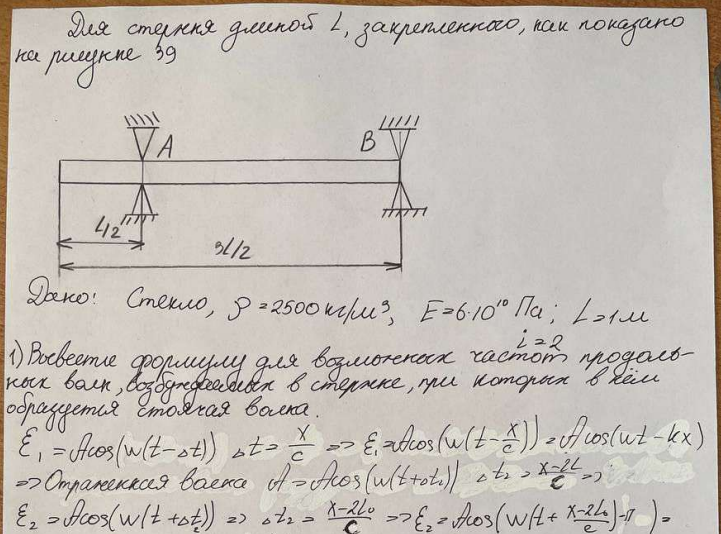 Для стержня длиной L, закрепленного, как показано
на рисунке 39
A
B
L/2
3L/2
Дано: Стекло, ρ = 2500 кг/м³, E = 6·10¹⁰ Па; L = 1 м
i = 2
1) Вывести формулу для возможных частот продоль-
ных волн, возбуждаемых в стержне, при которых в нём
образуется стоячая волна.
ξ₁ = Acos(w(t-Δt)) Δt = x/c => ξ₁ = Acos(w(t - x/c)) = Acos(wt - kx)
=> Отраженная волна A = Acos(w(t+Δt₂)) Δt₂ = x-2L/c =>
ξ₂ = Acos(w(t + Δt₂)) => Δt₂ = x-2L₀/c => ξ₂ = Acos(w(t + x-2L₀/c) - π) =